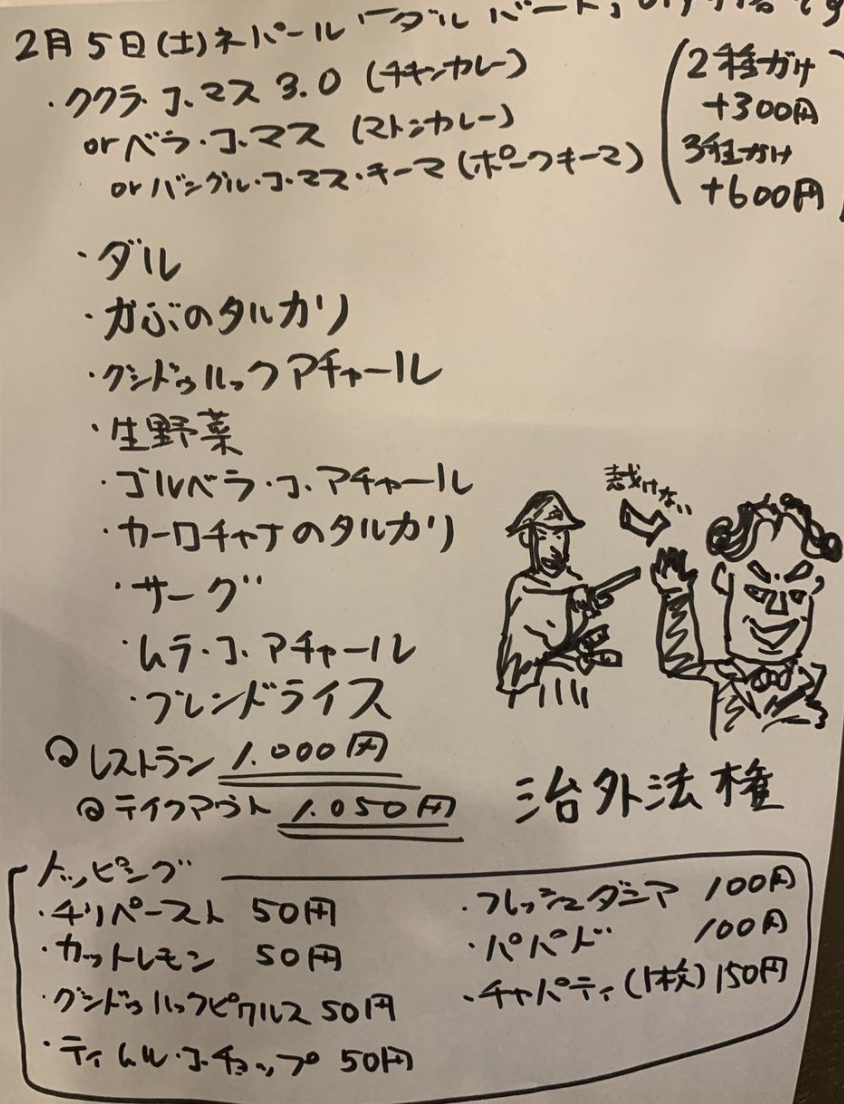 2月5日(土)ネパール「ダルバート」
・ククラ・コ・マス 3.0 (チキンカレー)
or ベラ・コ・マス (マトンカレー)
or バングル・コ・マス・キーマ (ポークキーマ)
2種がけ
+300円
3種がけ
+600円
・ダル
・かぶのタルカリ
・グンドゥルックアチャール
・生野菜
・ゴルベラ・コ・アチャール
・カーロチャナのタルカリ
・サーグ
・ムラ・コ・アチャール
・ブレンドライス
レストラン 1.000円
テイクアウト 1.050円
裁けない
治外法権
トッピング
・チリペースト 50円
・カットレモン 50円
・グンドゥルックピクルス 50円
・ティムル・コ・チョップ 50円
・フレッシュダニア 100円
・パパド 100円
・チャパティ(1枚) 150円